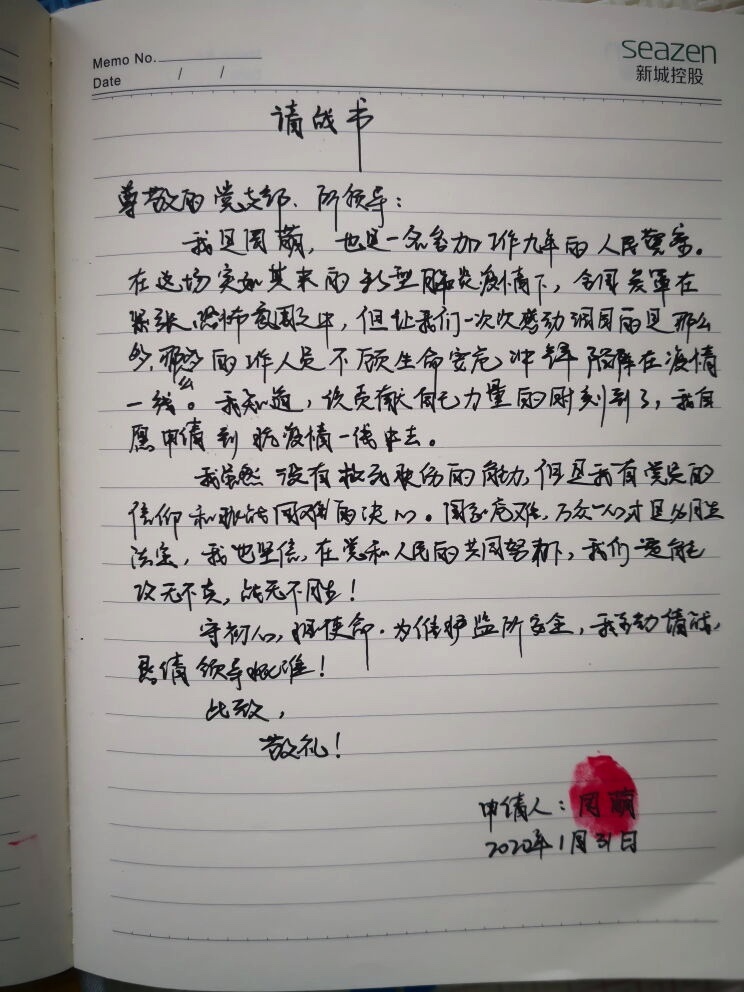 Memo No.
Date / /
seazen
新城控股
请战书
尊敬的党支部、所领导:
我是周萌,也是一名参加工作九年的人民警察。
在这场突如其来的新型肺炎疫情下,全国笼罩在
紧张、恐怖氛围之中,但让我们一次次感动的是那么
多,那么的工作人员不顾生命安危冲锋陷阵在疫情
一线。我知道,该贡献自己力量的时刻到了,我自
愿申请到抗疫情一线中去。
我虽然没有救死扶伤的能力,但是我有党员的
信仰和战困难的决心。国家危难,万众一心才是必胜
法宝,我也坚信,在党和人民的共同努力下,我们一定能
攻无不克,战无不胜!
守初心,担使命,为维护监所安全,我主动请战,
恳请领导批准!
此致,
敬礼!
申请人:周萌
2020年1月31日